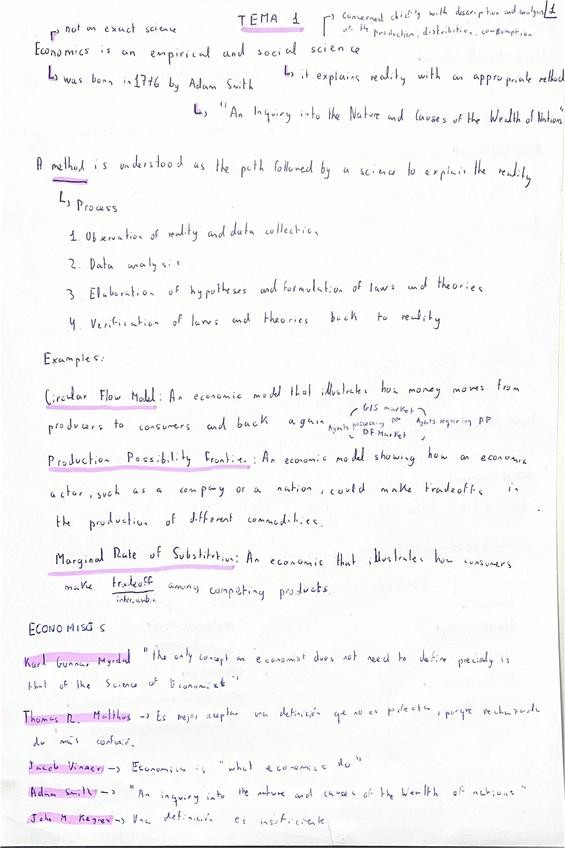 TEMA 1
1
not an exact science
concerned chiefly with description and analysis
of the production, distribution, consumption
Economics is an empirical and social science
was born in 1776 by Adam Smith
it explains reality with an appropriate method
"An Inquiry into the Nature and Causes of the Wealth of Nations"
A method is understood as the path followed by a science to explain the reality
Process
1. Observation of reality and data collection
2. Data analysis
3. Elaboration of hypotheses and formulation of laws and theories
4. Verification of laws and theories back to reality
Examples:
Circular Flow Model: An economic model that illustrates how money moves from
producers to consumers and back again
G/S market
Agents possessing PF Agents requiring PF
PF Market
Production Possibility Frontier: An economic model showing how an economic
actor, such as a company or a nation, could make tradeoffs in
the production of different commodities.
Marginal Rate of Substitution: An economic that illustrates how consumers
make tradeoff among competing products.
intercambio
ECONOMISTS
Karl Gunnar Myrdal "the only concept an economist does not need to define precisely is
that of the Science of Economist"
Thomas R. Malthus -> Es mejor aceptar una definición que no es perfecta, porque rechazarla
da más confusión.
Jacob Vinaer -> Economics is "what economics do"
Adam Smith -> "An inquiry into the nature and causes of the Wealth of nations"
John M. Keynes -> Una definición es insuficiente.